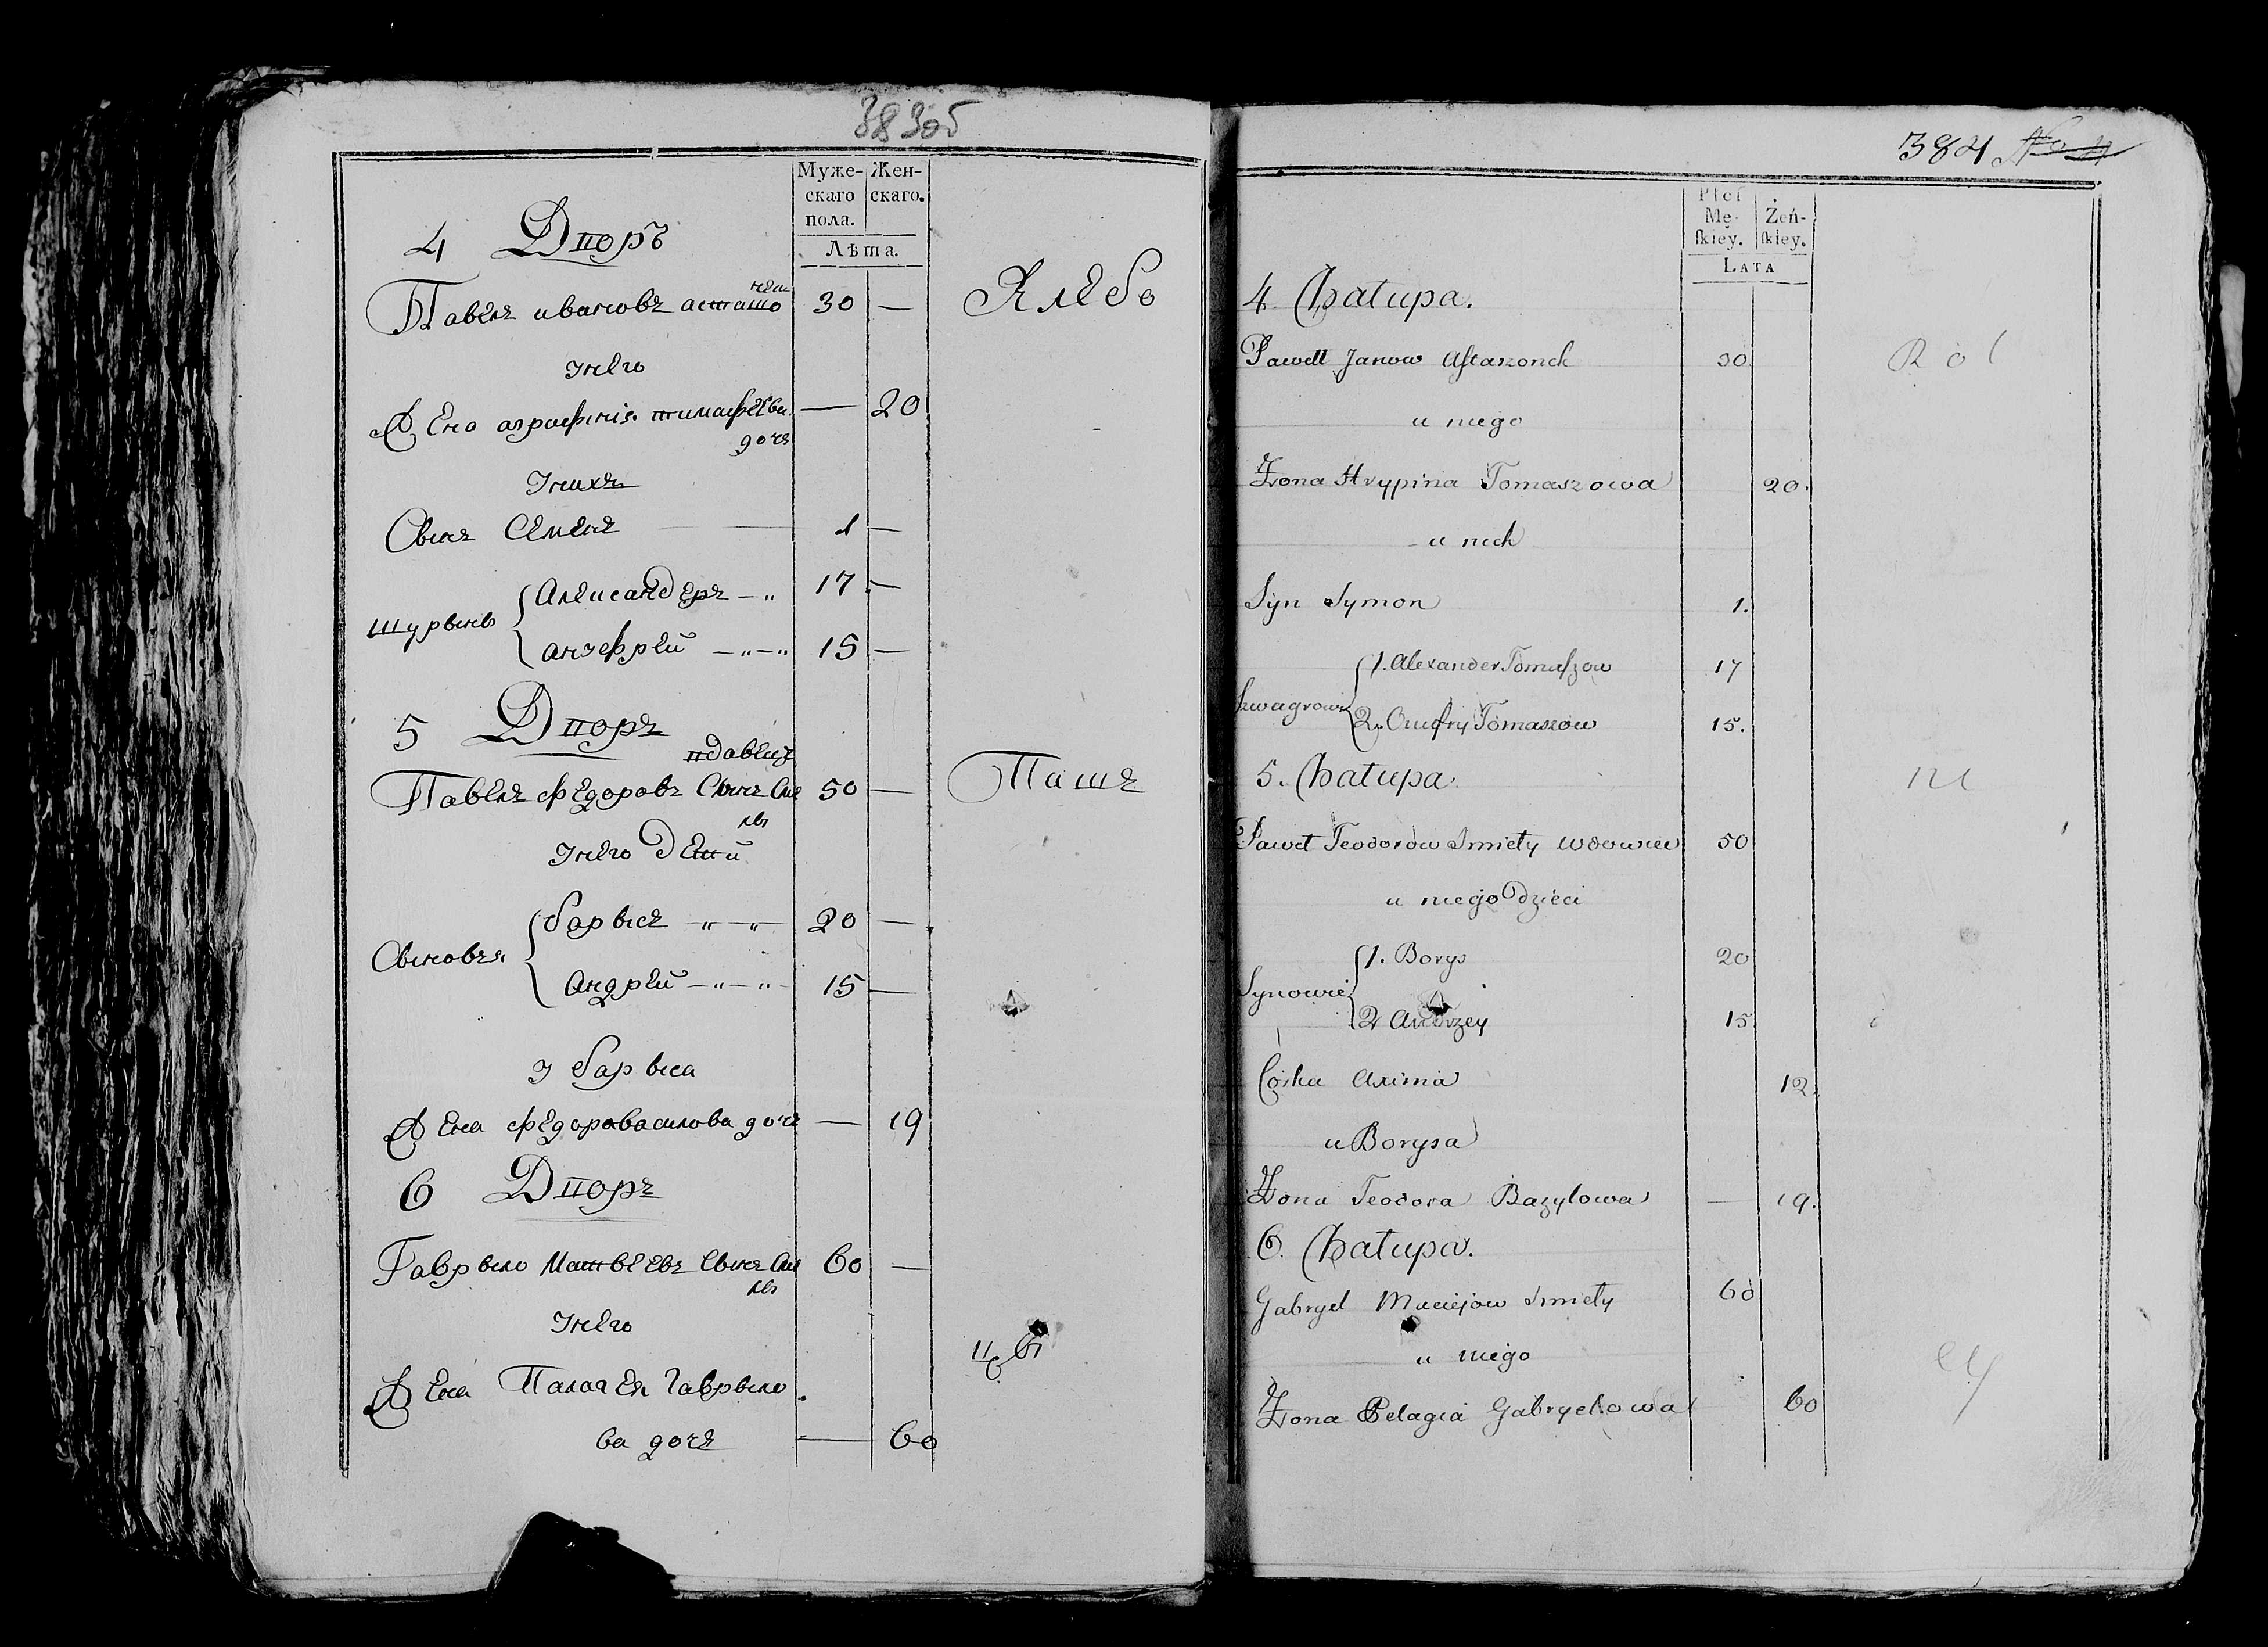 383об
Муже- Жен-
скаго скаго.
пола.
Лѣта.
4 Дворъ
Павелъ ивановъ асташо 30 —
нехъ
Унего
Жена аграфенія тимафеева — 20
дочъ
Унихъ
Сынъ Семенъ 1 —
шурыны Александеръ 17 —
анофрей 15 —
5 Дворъ
вдавецъ
Павелъ федоровъ Сынъ 50 —
Унего дети
Сыновъя барысъ 20 —
Андрей 15 —
У барыса
Жена федора васылова дочъ — 19
6 Дворъ
Гаврыло Матвѣевъ Сынъ 60 —
Унего
Жена Палагея Гаврыло
ва дочъ — 60
Хлѣбо
Паше
цы
384 No 4
Płci
Mę- Żeń-
ſkiey. ſkiey.
LATA
4. Chałupa.
Paweł Janow Aſtaszonek 30
u niego
Żona Hrypina Tomaszowa 20.
u nich
Syn Symon 1.
Szwagrowie 1. Alexander Tomaſzow 17
2. Onufry Tomaszow 15.
5. Chałupa
Paweł Teodorow Smiely Wdowiec 50
u niego Dzieci
Synowie 1. Borys 20
2 Andrzey 15
Córka Axinia 12
u Borysa
Żona Teodora Bazylowa — 19.
6. Chałupa.
Gabryel Maciejow Smiely 60
u niego
Żona Pelagia Gabryelowa 60
Rol